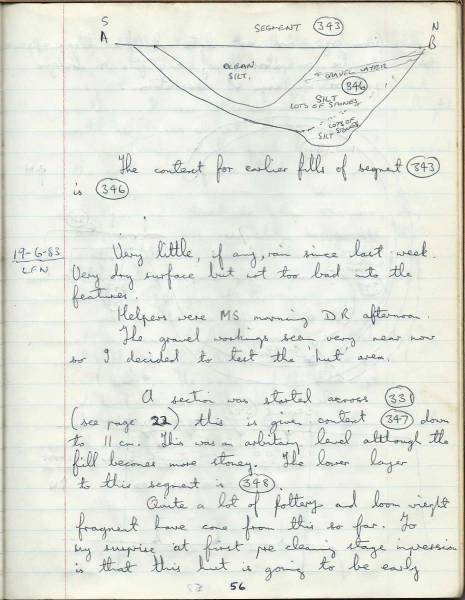 S
A
SEGMENT 343
N
B
CLEAN
SILT.
GRAVEL LAYER
346
SILT
LOTS OF STONES
LOTS OF
SILT STONES
The context for earlier fills of segment 343
is 346
19-6-83
LFN
Very little, if any, rain since last week.
Very dry surface but not too bad into the
features.
Helpers were MS morning DR afternoon.
The gravel workings seem very near now
so I decided to test the 'hut' area.
A section was started across 331
(see page 22) this is given context 347 down
to 11 cm. This was an arbitary level although the
fill becomes more stoney. The lower layer
to this segment is 348.
Quite a lot of pottery and loom weight
fragment have come from this so far. To
my surprise at first pre cleaning stage impression
is that this hut is going to be early
56